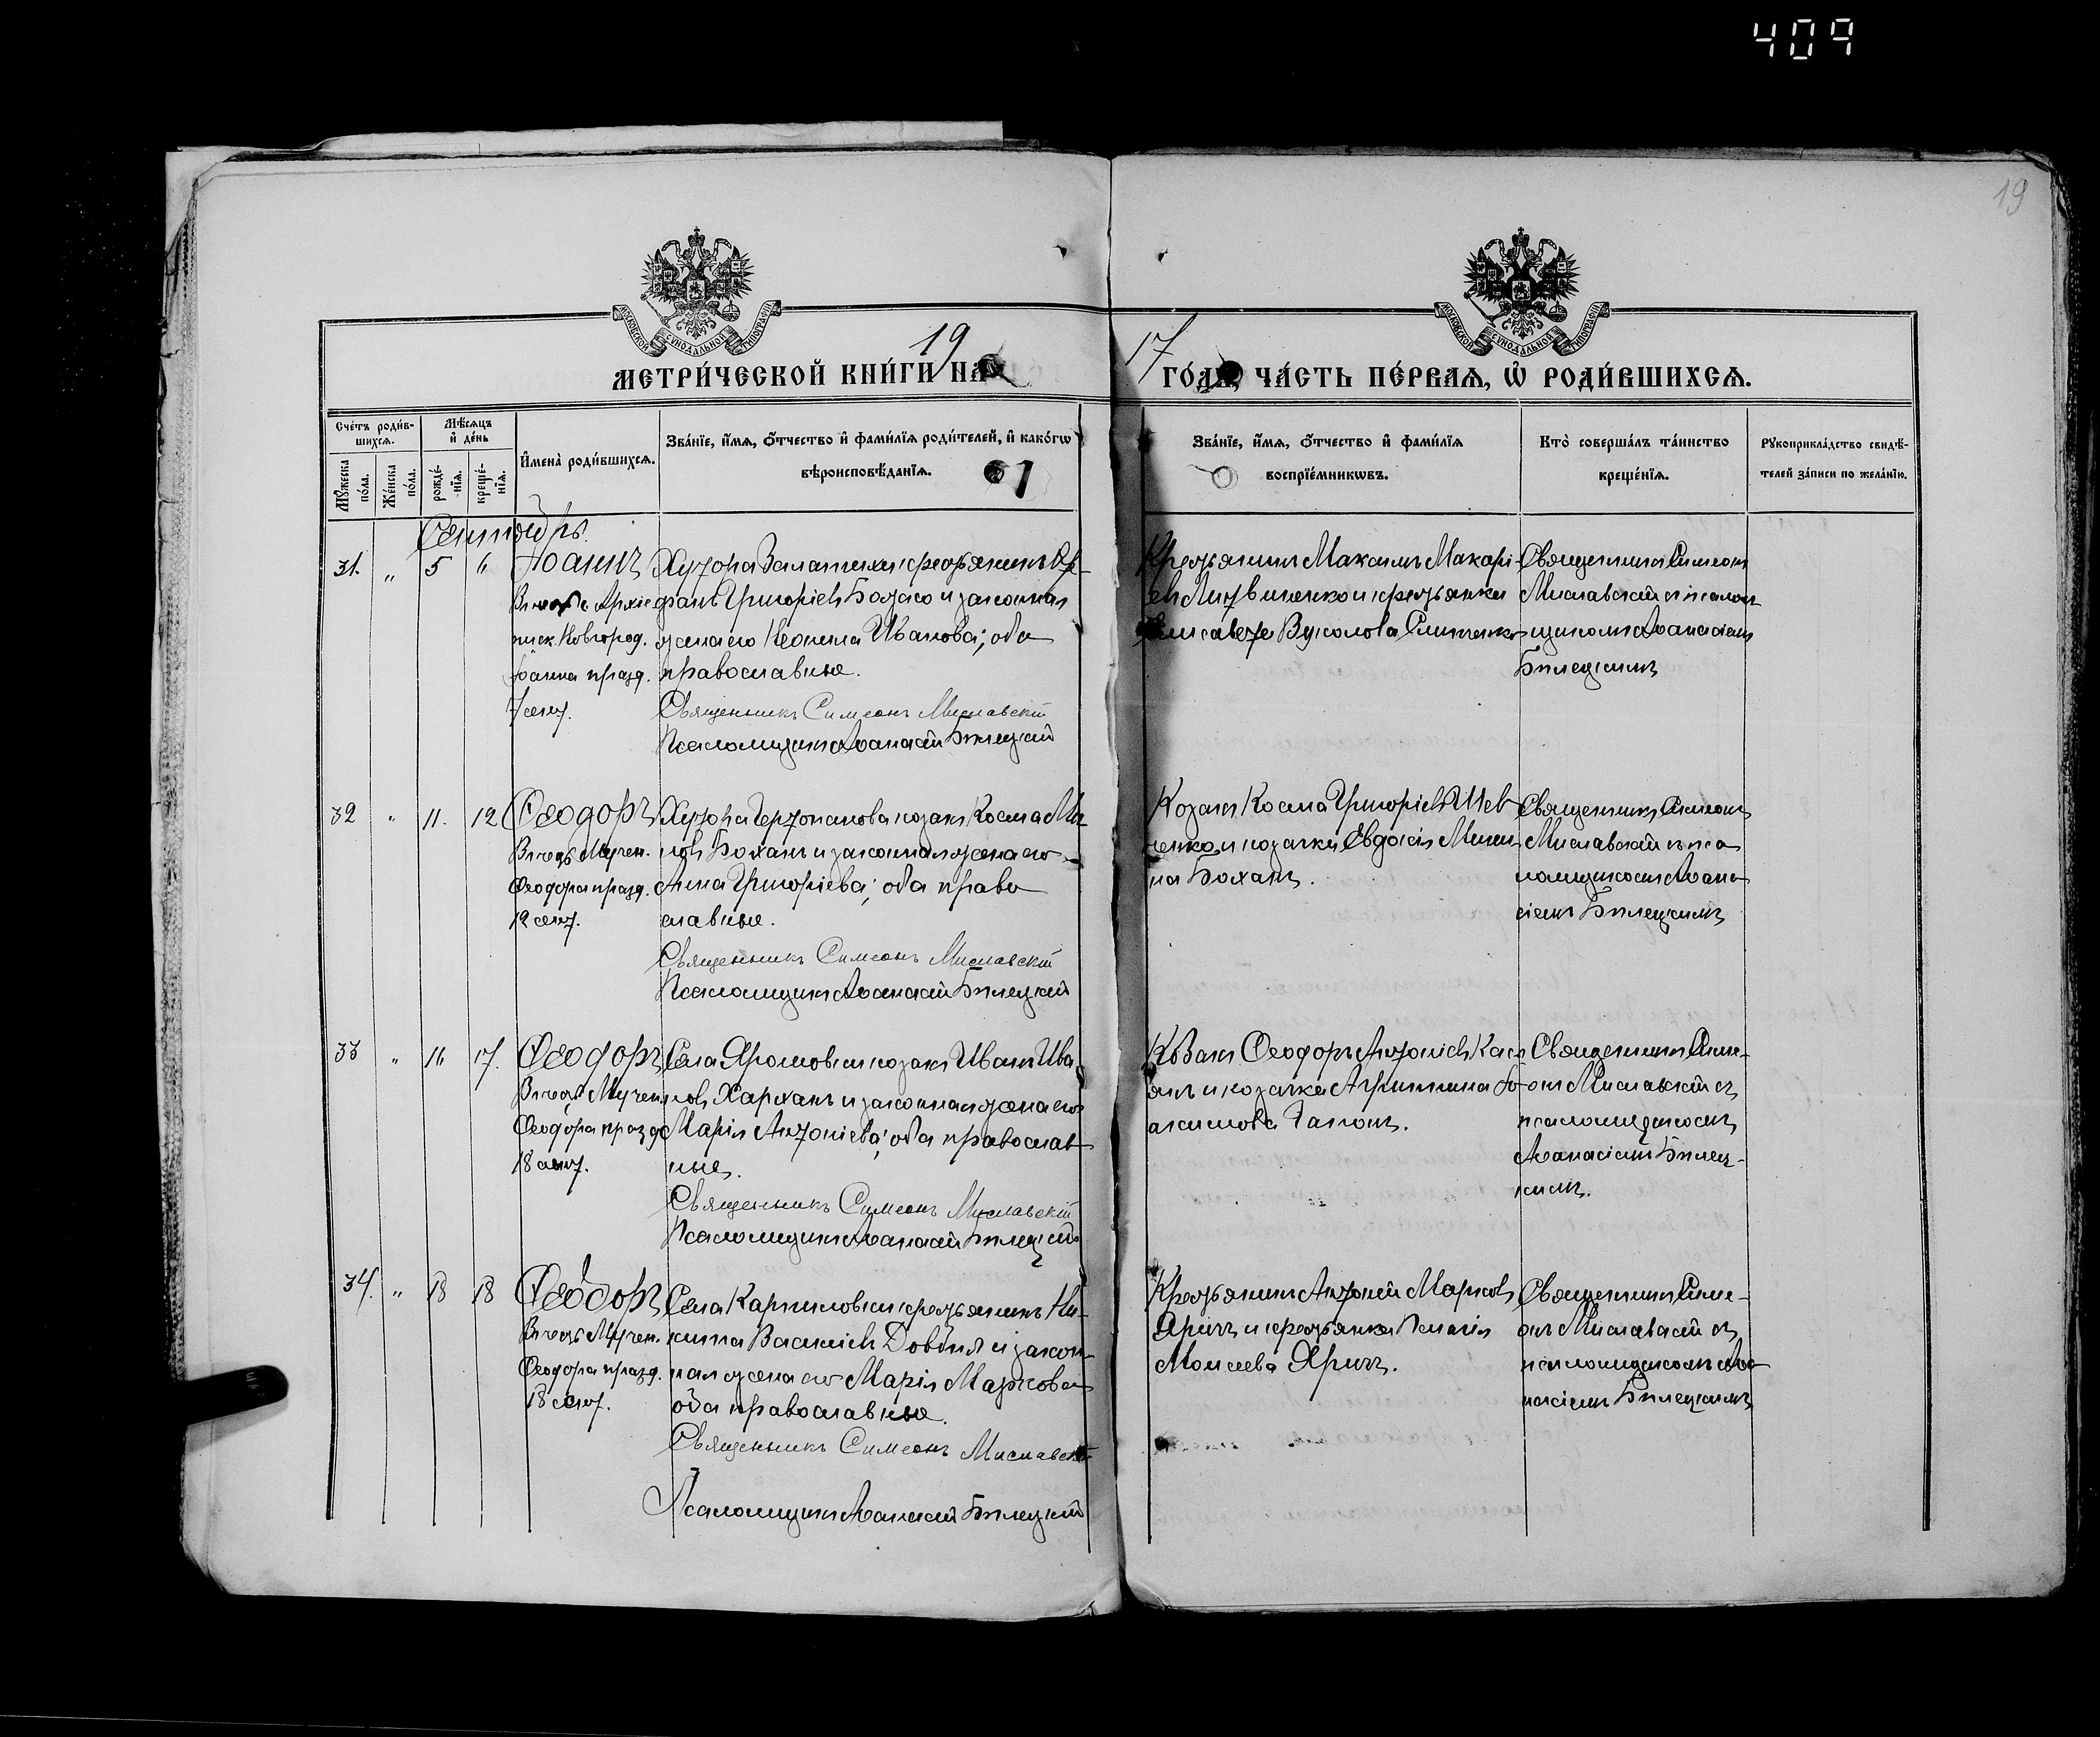 409
19
МОСКОВСКОЙ СѴНОДАЛЬНОЙ ТИПОГРАФІИ
МОСКОВСКОЙ СѴНОДАЛЬНОЙ ТИПОГРАФІИ
МЕТРИ́ЧЕСКОЙ КНИ́ГИ НА 1917 ГО́ДА, ЧА́СТЬ ПЕ́РВАѦ, Ѡ҆ РОДИ́ВШИХСѦ.
Сче́тъ роди́в-
шихсѧ.
Мꙋ́жеска по́ла.
Же́нска по́ла.
Мѣ́сѧцъ и҆ де́нь
рожде́-нїѧ.
креще́-нїѧ.
И҆мена̀ роди́вшихсѧ.
Зва́нїе, и҆́мѧ, ѻ҆́тчество и҆ фами́лїѧ роди́телей, и҆ како́гѡ
вѣроисповѣ́данїѧ.
Зва́нїе, и҆́мѧ, ѻ҆́тчество и҆ фами́лїѧ
воспрїе́мникѡвъ.
Кто̀ соверша́лъ та́инство
креще́нїѧ.
Рꙋкоприкла́дство свидѣ́-
телей за́писи по жела́нїю.
Сентябрь
31. " 5 6 Іоаннъ
Въ честь Архіе
писк. Новгород.
Іоанна празд.
7 сент.
Хутора крестьянинъ
Григоріевъ и законная
жена его Иванова; оба
православные.
Священникъ Симеонъ Миславскій
Псаломщикъ Аѳанасій Бѣлецкій
Крестьянинъ Максимъ Макарі-
евъ Литвиненко и крестьянка
Елисавета Вуколова
Священникъ Симеонъ
Миславскій съ псалом
щикомъ Аѳанасіемъ
Бѣлецкимъ
32 " 11. 12 Ѳеодоръ
Въ честь Мучен.
Ѳеодора празд.
12 сент.
Хутора козакъ Косма
Божанъ и законная жена его
Анна Григоріева; оба право
славные.
Священникъ Симеонъ Миславскій
Псаломщикъ Аѳанасій Бѣлецкій
Козакъ Косма Григоріевъ Шев
ченко и козачка Евдокія
на Божанъ.
Священникъ Симеонъ
Миславскій съ пса
ломщикомъ Аѳана
сіемъ Бѣлецкимъ
33 " 16 17. Ѳеодоръ
Въ честь Мучен.
Ѳеодора празд.
18 сент.
Села Яроповки козакъ Иванъ Ива
новъ Харханъ и законная жена его
Марія Антоніева; оба православ
ные.
Священникъ Симеонъ Миславскій
Псаломщикъ Аѳанасій Бѣлецкій
Козакъ Ѳеодоръ Антоніевъ
и козачка Агриппина
Священникъ Симе-
онъ Миславскій съ
псаломщикомъ
Аѳанасіемъ Бѣлец-
кимъ.
34. " 18 18 Ѳеодоръ
Въ честь Мучен.
Ѳеодора празд.
18 сент.
Села Карпиловки крестьянинъ Ни-
кита Василіевъ Довбня и закон-
ная жена его Марія Маркова
оба православные.
Священникъ Симеонъ Миславскій
Псаломщикъ Аѳанасій Бѣлецкій
Крестьянинъ Антоній Марковъ
Яричъ и крестьянка Пелагія
Моисеева Яричъ.
Священникъ Симе-
онъ Миславскій съ
псаломщикомъ Аѳа
насіемъ Бѣлецкимъ